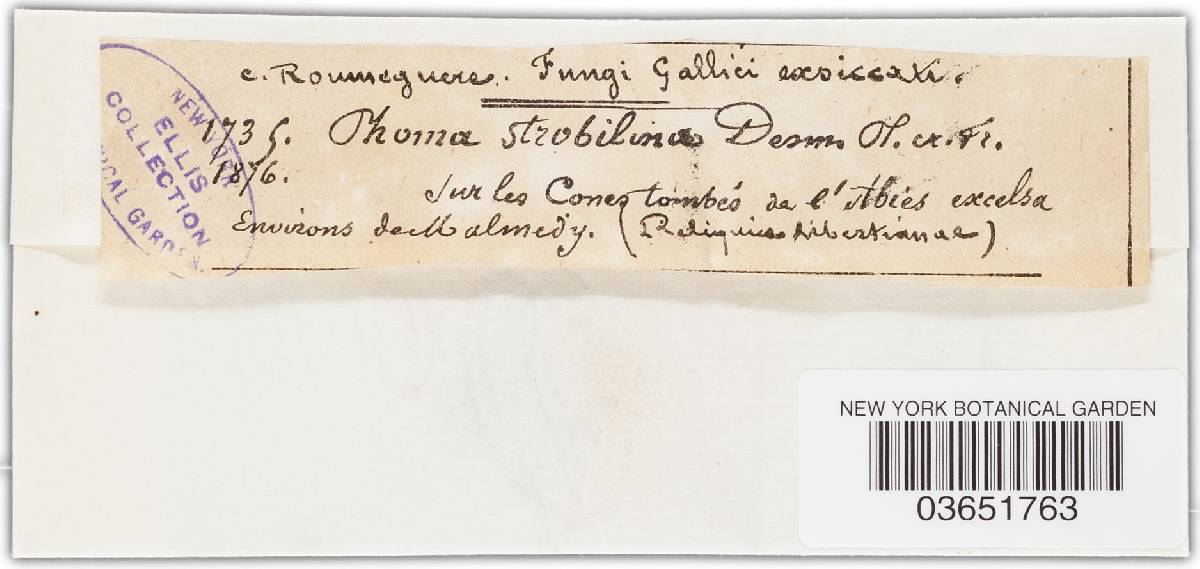 C. Roumeguere. Fungi Gallici exsiccati.
1735. Phoma strobilina Desm. Pl. cr. Fr.
1876.
Sur les Cones tombés de l'Abies excelsa
Environs de Malmedy. (Reliquiae Libertianae)
NEW YORK
ELLIS
COLLECTION
ICAL GARDEN.
NEW YORK BOTANICAL GARDEN
03651763